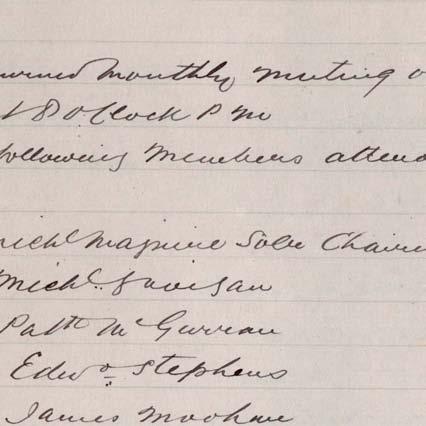 ourned Monthly Meeting o
t 8 o Clock P M
following Members attend
Mich Maguire Solr Chairm
Mich
Patk McGurran
Edwd Stephens
James